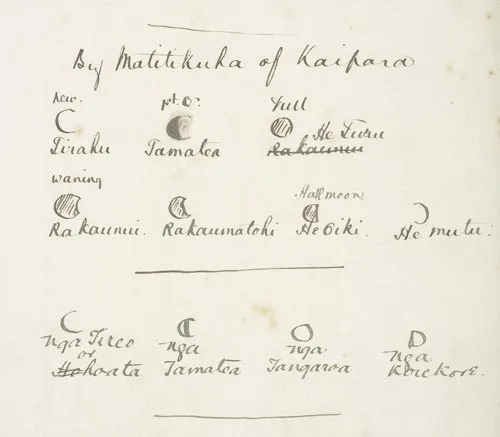 By Matitikuha of Kaipara
new. full
Tirahu Tamatea He Turu
Rakaunui
waning Half moon
Rakaunui. Rakaumatohi He Oiki. He mutu.
nga Tireo nga nga nga
or
Hohoata Tamatea Tangaroa Korekore.